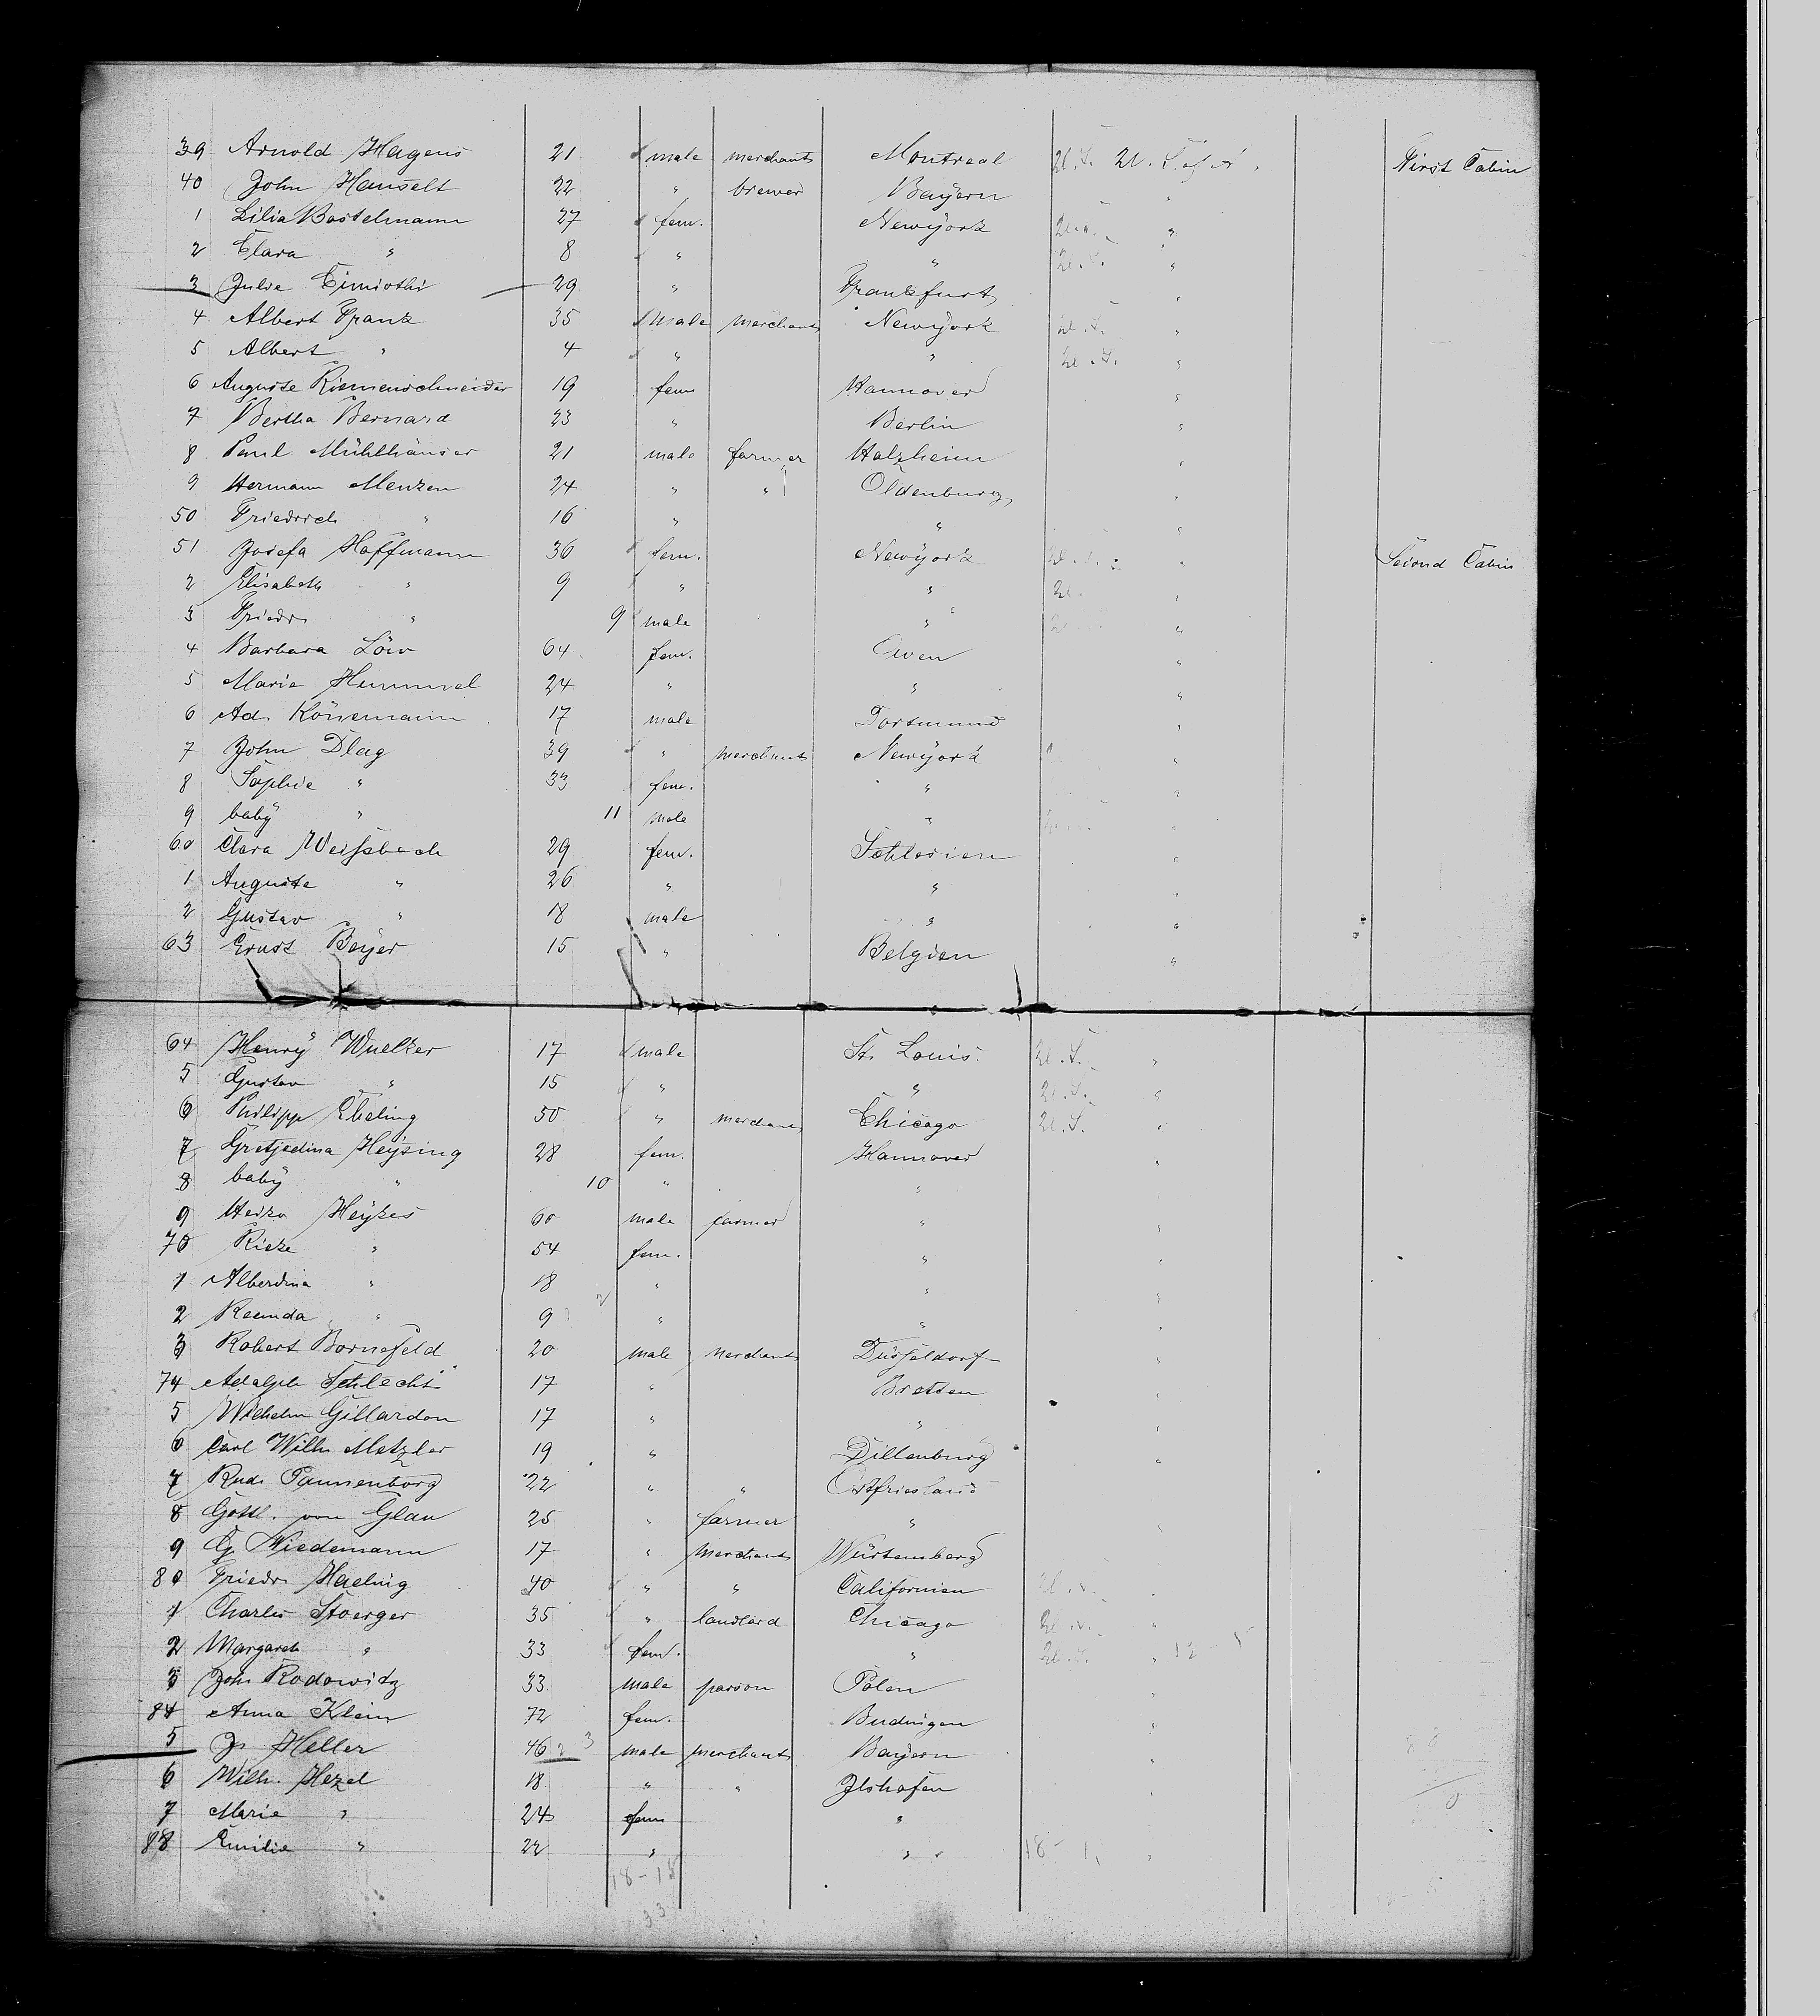 39 Arnold Hagens 21 male merchant Montreal U. S. of A. First Cabin
40 John Hanselt 22 " brewer Bayern "
1 Lilia Bostelmann 27 fem. Newyork "
2 Clara " 8 " " "
3 Julie Timiothi 29 " Frankfurt "
4 Albert Frank 35 male merchant Newyork "
5 Albert " 4 " " "
6 Auguste Riemenschneider 19 fem Hannover "
7 Bertha Bernard 23 " Berlin "
8 Paul Mühlhäuser 21 male farmer Holzheim "
9 Hermann Menzen 24 " " Oldenburg "
50 Friedrich " 16 " " "
51 Josefa Hoffmann 36 fem. Newyork " Second Cabin
2 Elisabeth " 9 " " "
3 Friedr. " 9 male " "
4 Barbara Löw 64 fem. Owen "
5 Marie Hummel 24 " " "
6 Ad. Könemann 17 male Dortmund "
7 John Dlag 39 " merchant Newyork "
8 Sophie " 33 fem. " "
9 baby " 11 male " "
60 Clara Weissbach 29 fem. Schlesien "
1 Auguste " 26 " " "
2 Gustav " 18 male " "
63 Ernst Beyer 15 " Belgien "
64 Henry Wuelker 17 male St. Louis U.S. "
5 Gustav " 15 " " U.S. "
6 Philipp Ebeling 50 " merchant Chicago U.S. "
7 Gretjedina Heysing 28 fem. Hannover "
8 baby " 10 " " "
9 Heiko Heykes 60 male farmer " "
70 Rieke " 54 fem. " "
1 Alberdina " 18 " " "
2 Reemda " 9 " " "
3 Robert Bornefeld 20 male merchant Düsseldorf "
74 Adolph Schlecht 17 " Bretten "
5 Wilhelm Gillardon 17 " " "
6 Carl Wilh. Metzler 19 " Dillenburg "
7 Rud. Pannenborg 22 " " Ostfriesland
8 Gottl. von Glan 25 " farmer " "
9 G. Wiedemann 17 " merchant Würtemberg
80 Friedr. Haeling 40 " " Californien "
1 Charles Stoerger 35 " landlord Chicago "
2 Margareth " 33 fem. " "
3 John Rodowitz 33 male parson Polen "
84 Anna Klein 72 fem. Budingen "
5 J. Heller 46 male merchant Bayern "
6 Wilh. Hezel 18 " " Ilshofen "
7 Marie " 24 fem "
88 Emilie " 22 " " "
18-18
33